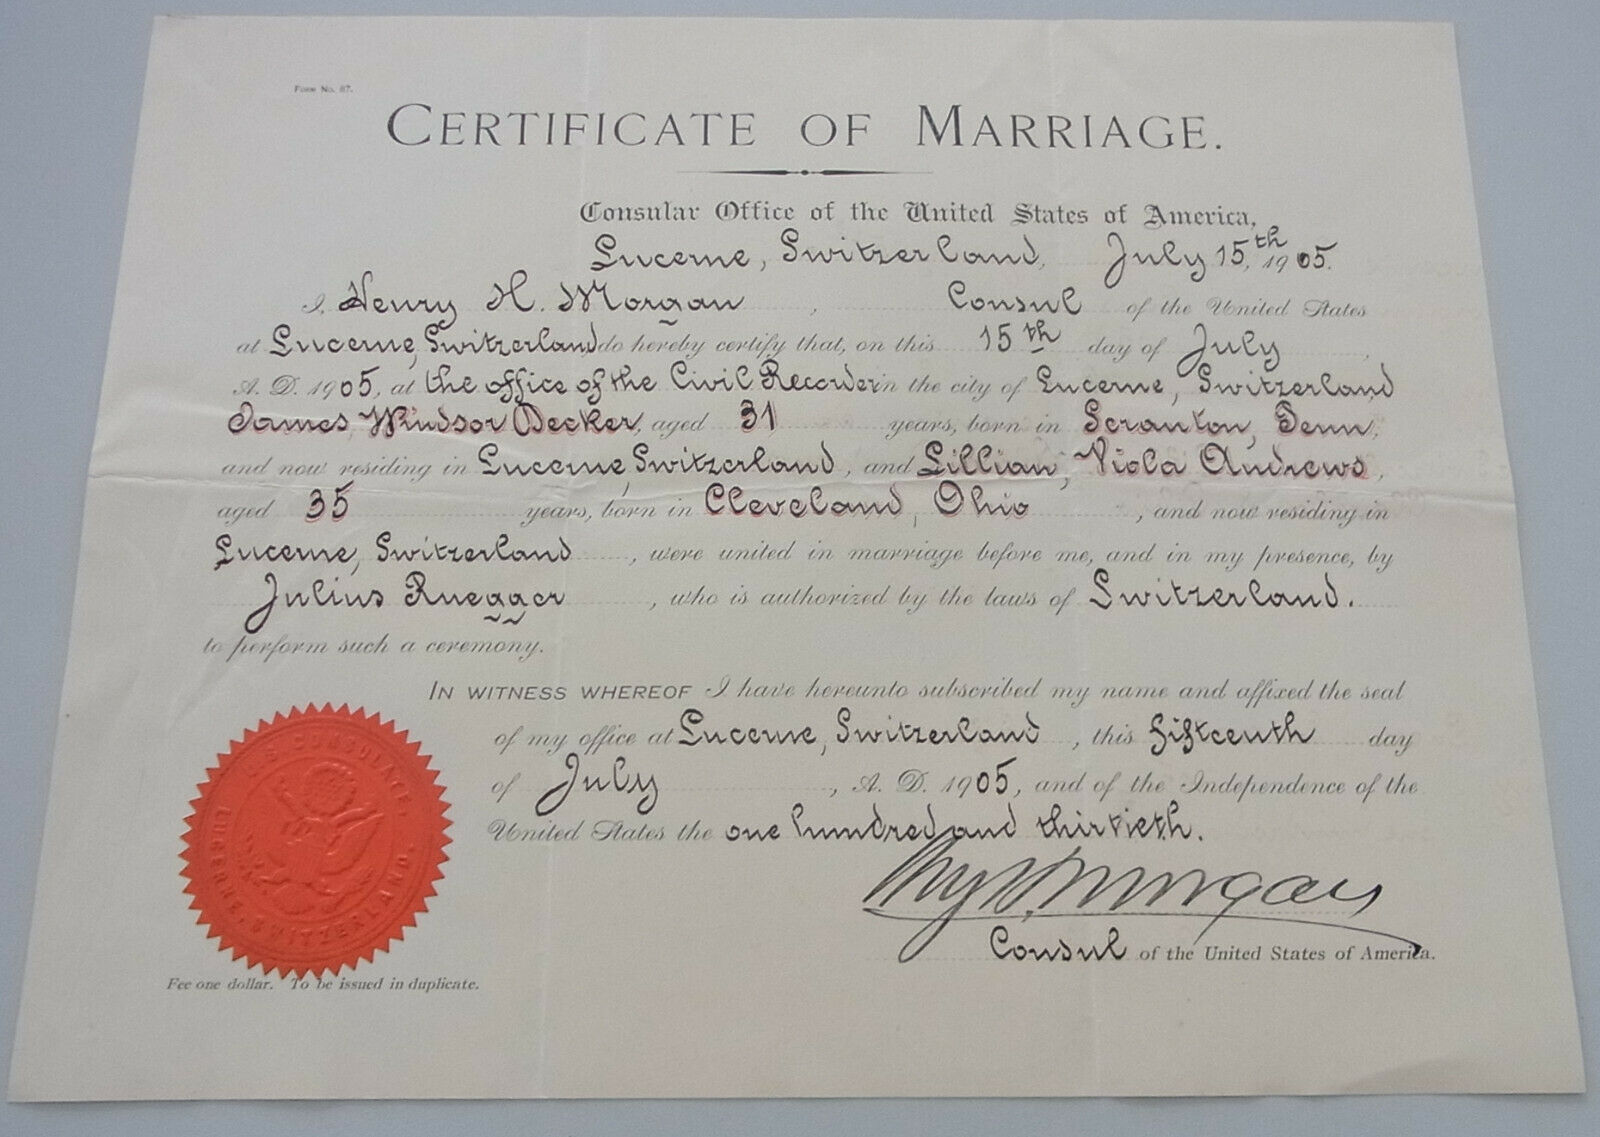 Form No. 87.
CERTIFICATE OF MARRIAGE.
Consular Office of the United States of America,
Lucerne, Switzerland, July 15th, 1905.
I, Henry H. Morgan, Consul of the United States
at Lucerne, Switzerland do hereby certify that, on this 15th day of July,
A. D. 1905, at the office of the Civil Recorder in the city of Lucerne, Switzerland
James Windsor Decker, aged 31 years, born in Scranton, Penn,
and now residing in Lucerne, Switzerland, and Lillian Viola Andrews,
aged 35 years, born in Cleveland, Ohio, and now residing in
Lucerne, Switzerland, were united in marriage before me, and in my presence, by
Julius Ruegger, who is authorized by the laws of Switzerland.
to perform such a ceremony.
IN WITNESS WHEREOF I have hereunto subscribed my name and affixed the seal
of my office at Lucerne, Switzerland, this fifteenth day
of July, A. D. 1905, and of the Independence of the
United States the one hundred and thirtieth.
Hry H. Morgan
Consul of the United States of America.
U.S. CONSULATE,
LUCERNE, SWITZERLAND.
Fee one dollar. To be issued in duplicate.